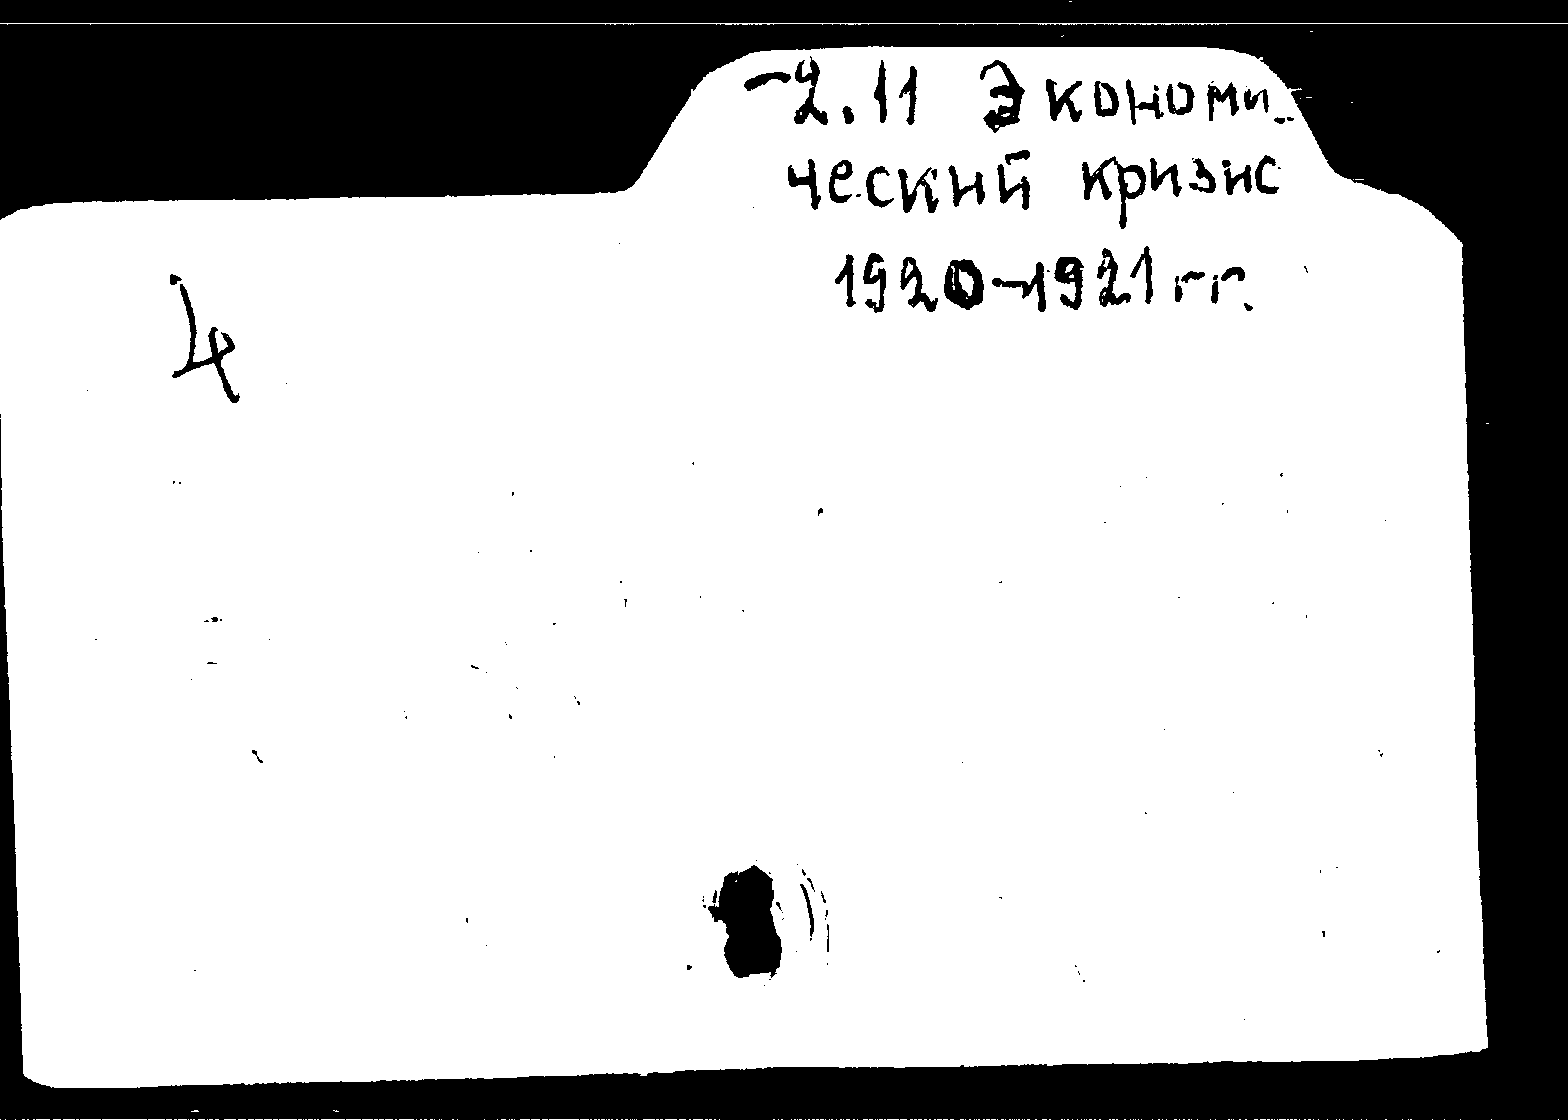 -2.11 Экономи-
ческий кризис
1920-1921 гг.
4